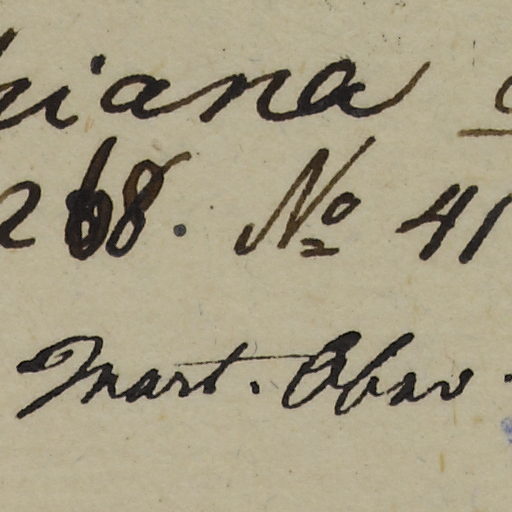 iana
268. No 41
Mart. Obsv.